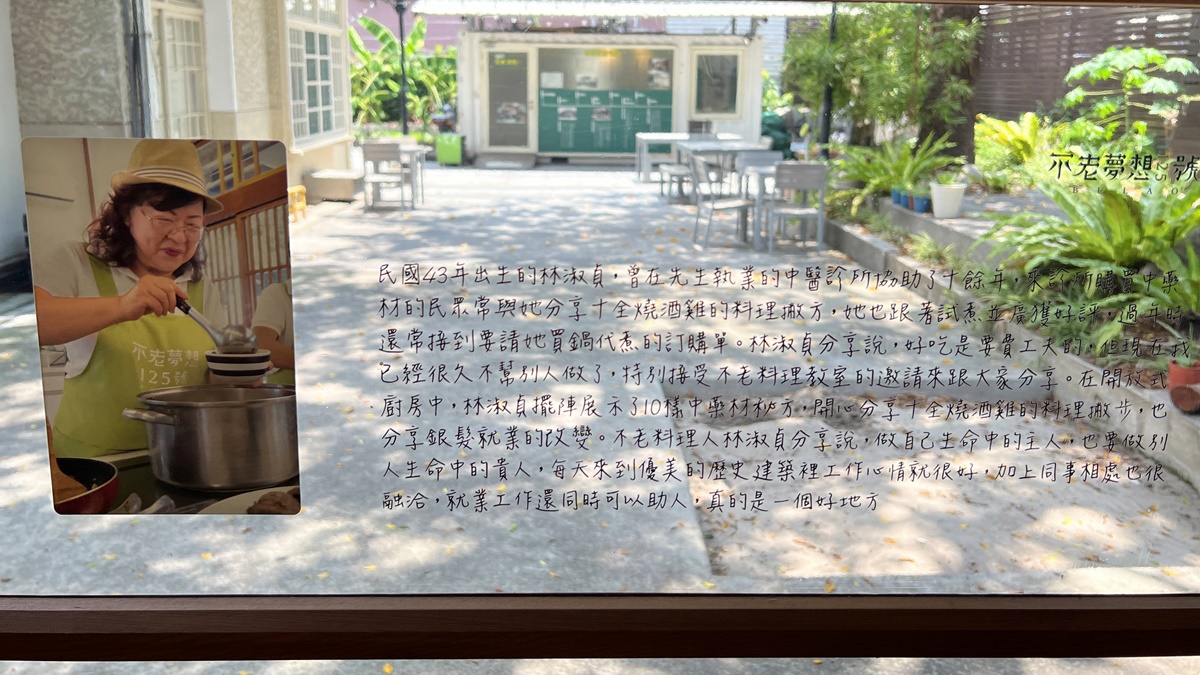 不老夢想125號
BULAO
不老夢想
125號
民國43年出生的林淑貞，曾在先生執業的中醫診所協助了十餘年，來診所購買中藥
材的民眾常與她分享十全燒酒雞的料理撇方，她也跟著試煮並廣獲好評，過年時
還常接到要請她買鍋代煮的訂購單。林淑貞分享說，好吃是要費工夫的，但現在我
已經很久不幫別人做了，特別接受不老料理教室的邀請來跟大家分享。在開放式
廚房中，林淑貞擺陣展示了10樣中藥材秘方，開心分享十全燒酒雞的料理撇步，也
分享銀髮就業的改變。不老料理人林淑貞分享說，做自己生命中的主人，也要做別
人生命中的貴人，每天來到優美的歷史建築裡工作心情就很好，加上同事相處也很
融洽，就業工作還同時可以助人，真的是一個好地方